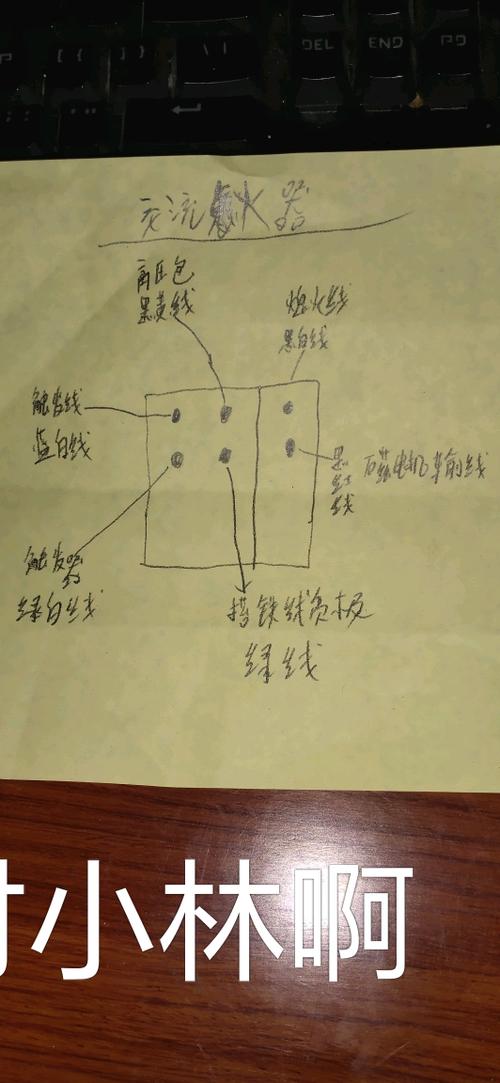 DEL
END
PD
交流点火器
高压包
黑黄线
熄火线
黑白线
触发线
蓝白线
黑红线
磁电机车前线
触发器
绿白线
搭铁线负极
绿线
小林啊